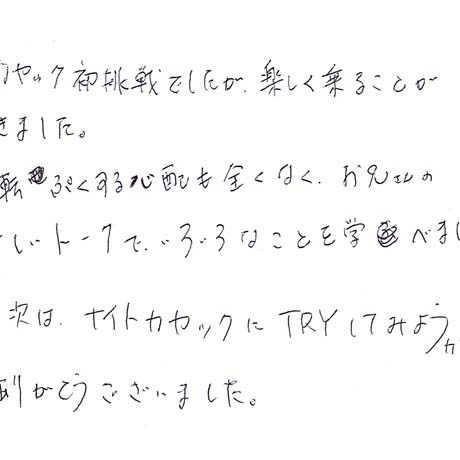 カヤック初挑戦でしたが、楽しく乗ることが
きました。
転ぷくする心配も全くなく、お兄さんの
しいトークで、いろいろなことを学べまし
次は、ナイトカヤックにTRYしてみようか
ありがとうございました。